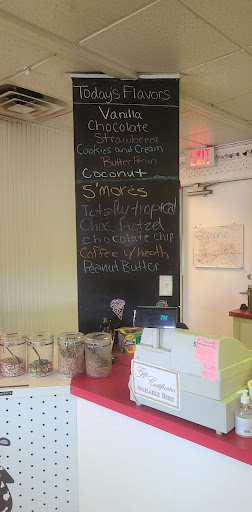 Today's Flavors
Vanilla
Chocolate
Strawberry
Cookies and Cream
Butter Pecan
Coconut
S'mores
Totally Tropical
Choc Pretzel
Chocolate chip
Coffee w/heath
Peanut Butter
EXIT
Gift
Certificates
AVAILABLE HERE